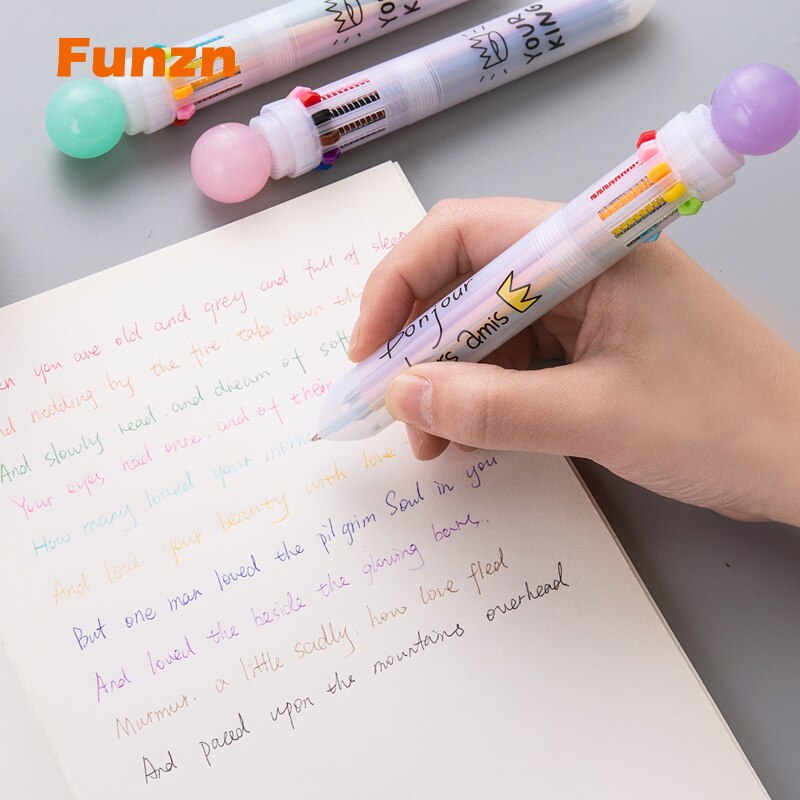 Funzn
YOUR
KING
bonjour
amis
you are old and grey and full of sleep
nodding by the fire, take down
And slowly read, and dream of soft
Your eyes had once, and of their
How many loved your
And love your beauty with love
But one man loved the pilgrim Soul in you
And loved the beside the glowing bars.
Murmur. a little sadly, how love fled
And paced upon the mountains overhead